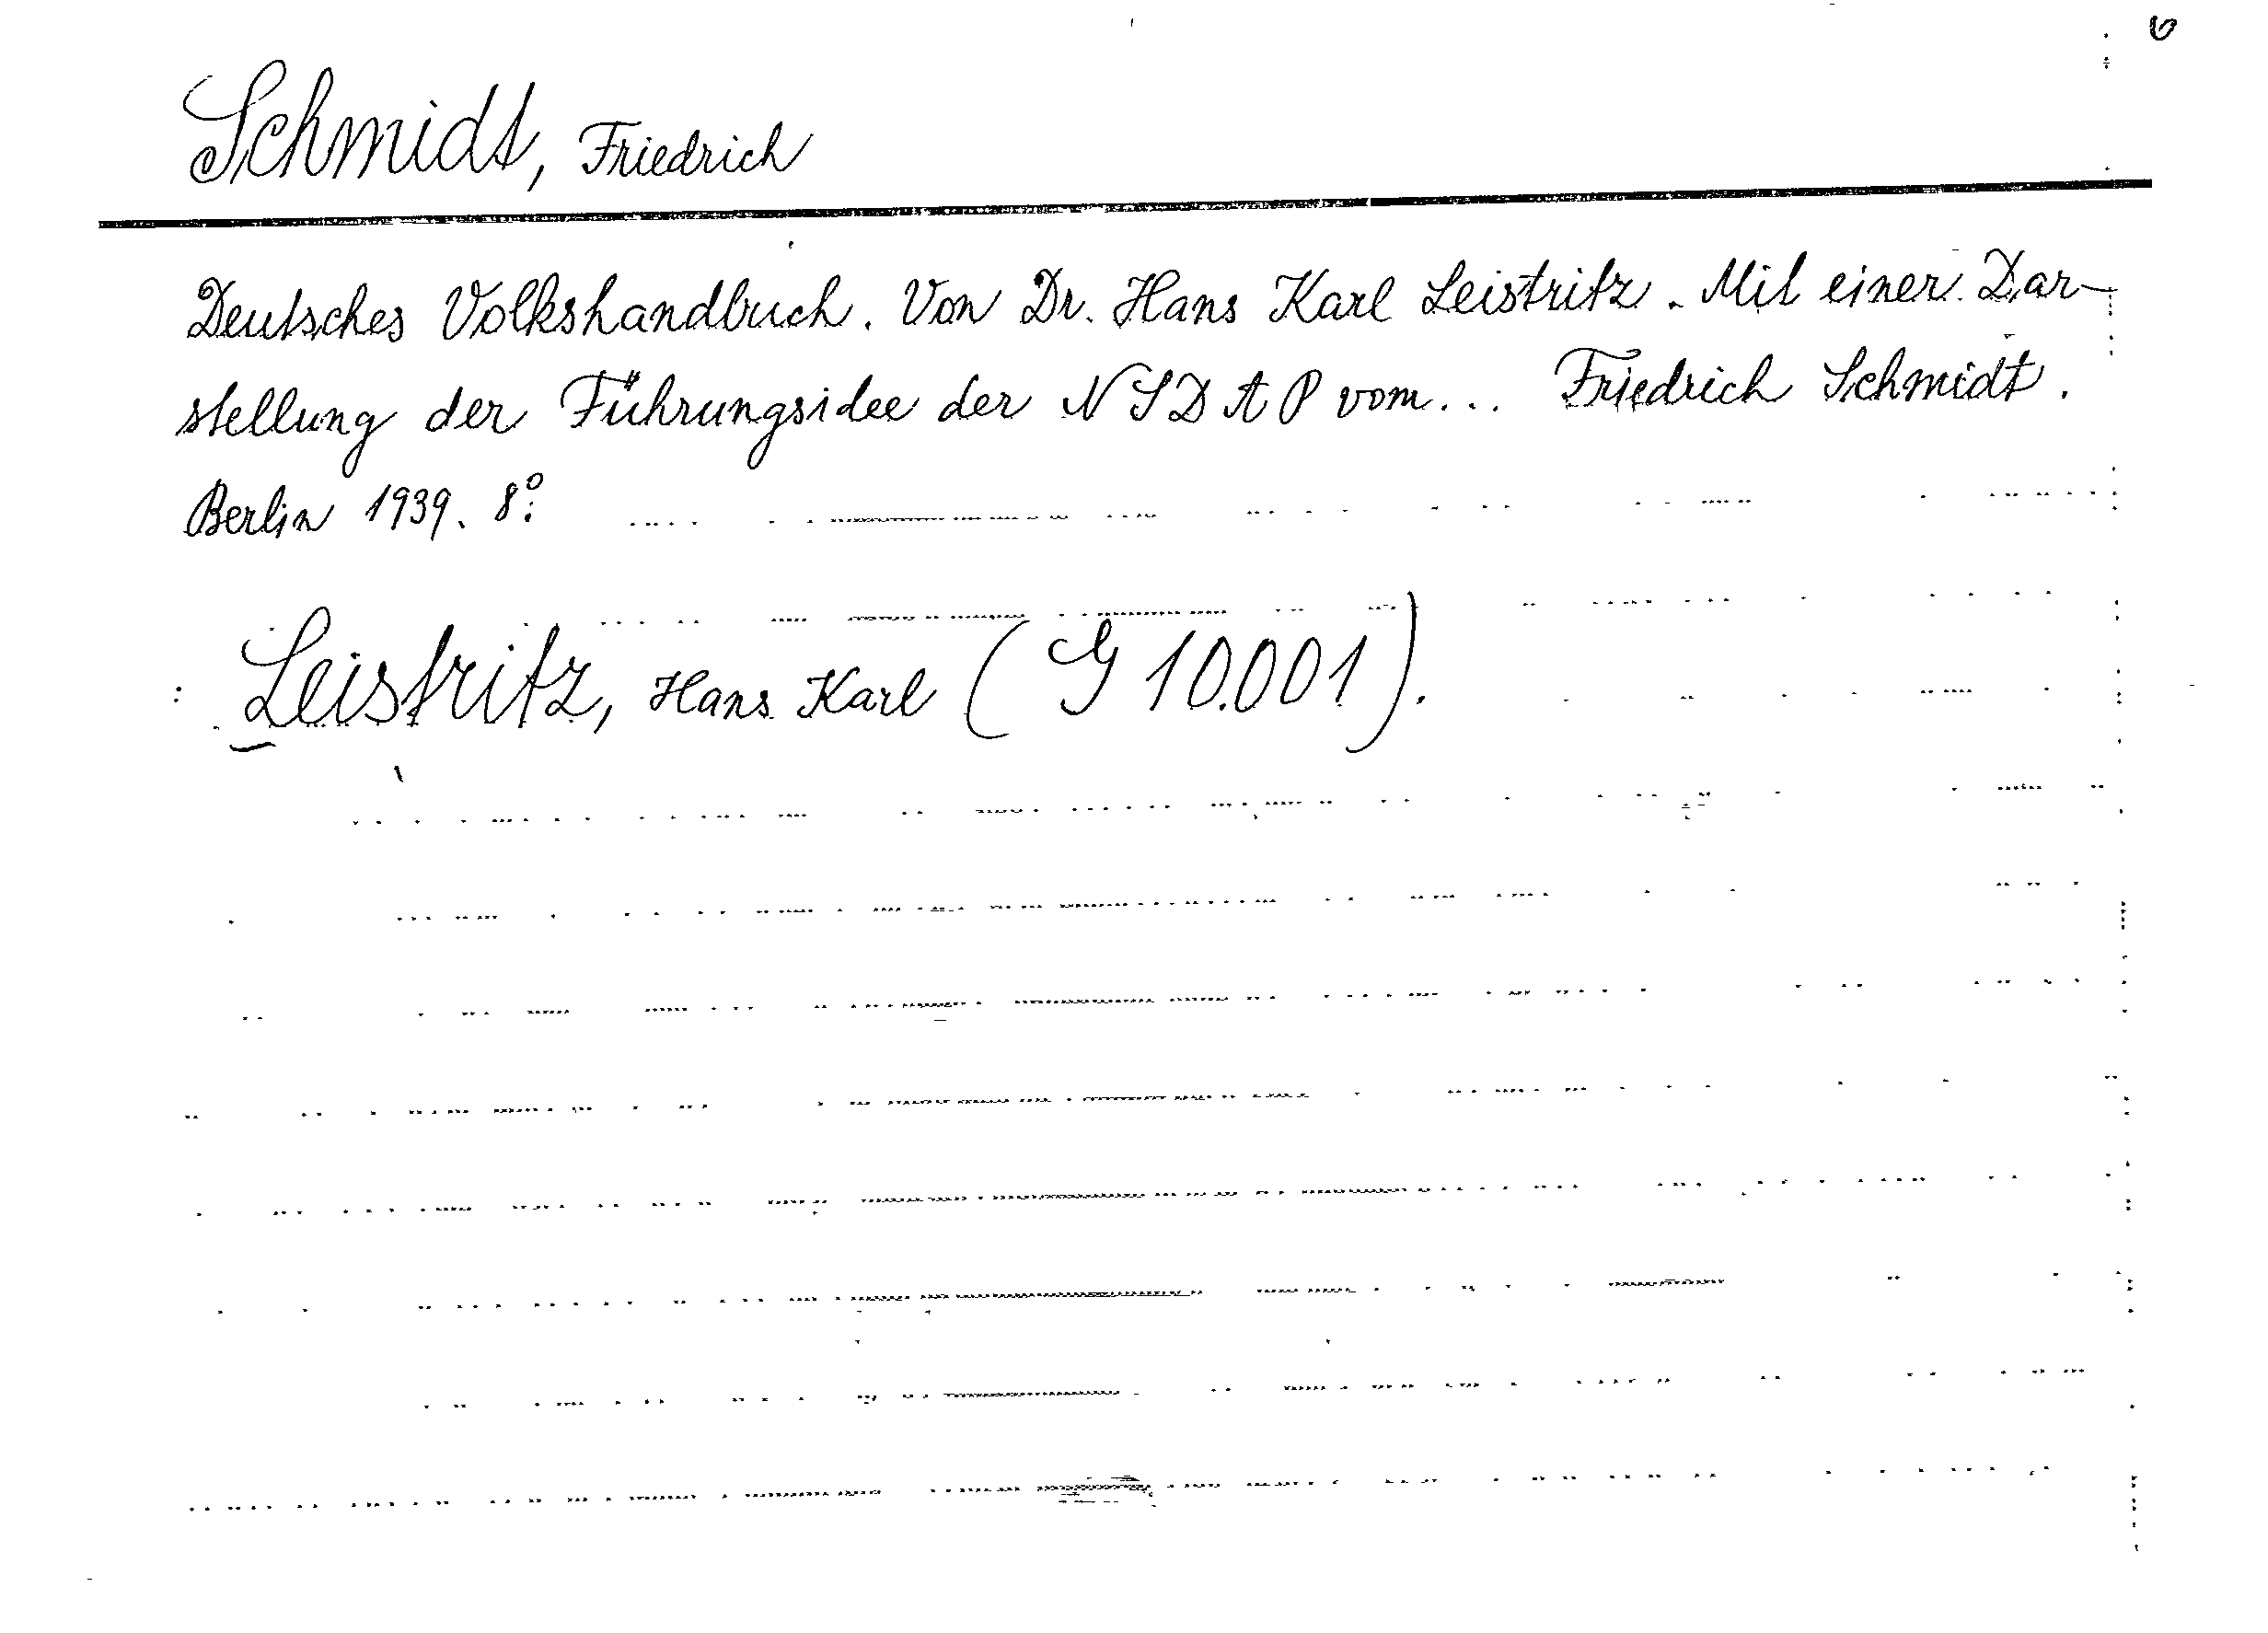 Schmidt, Friedrich
Deutsches Volkshandbuch. Von Dr. Hans Karl Leistritz. Mit einer Dar-
stellung der Führungsidee der NSDAP vom... Friedrich Schmidt.
Berlin 1939. 8°.
: Leistritz, Hans Karl (G 10.001).